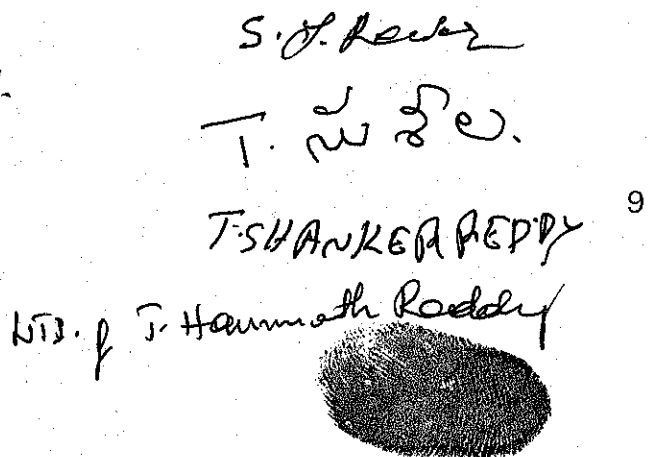 S. J. Reddy
T. సుశీల.
T. SHANKER REDDY
9
LTI. of T. Hanmanth Reddy